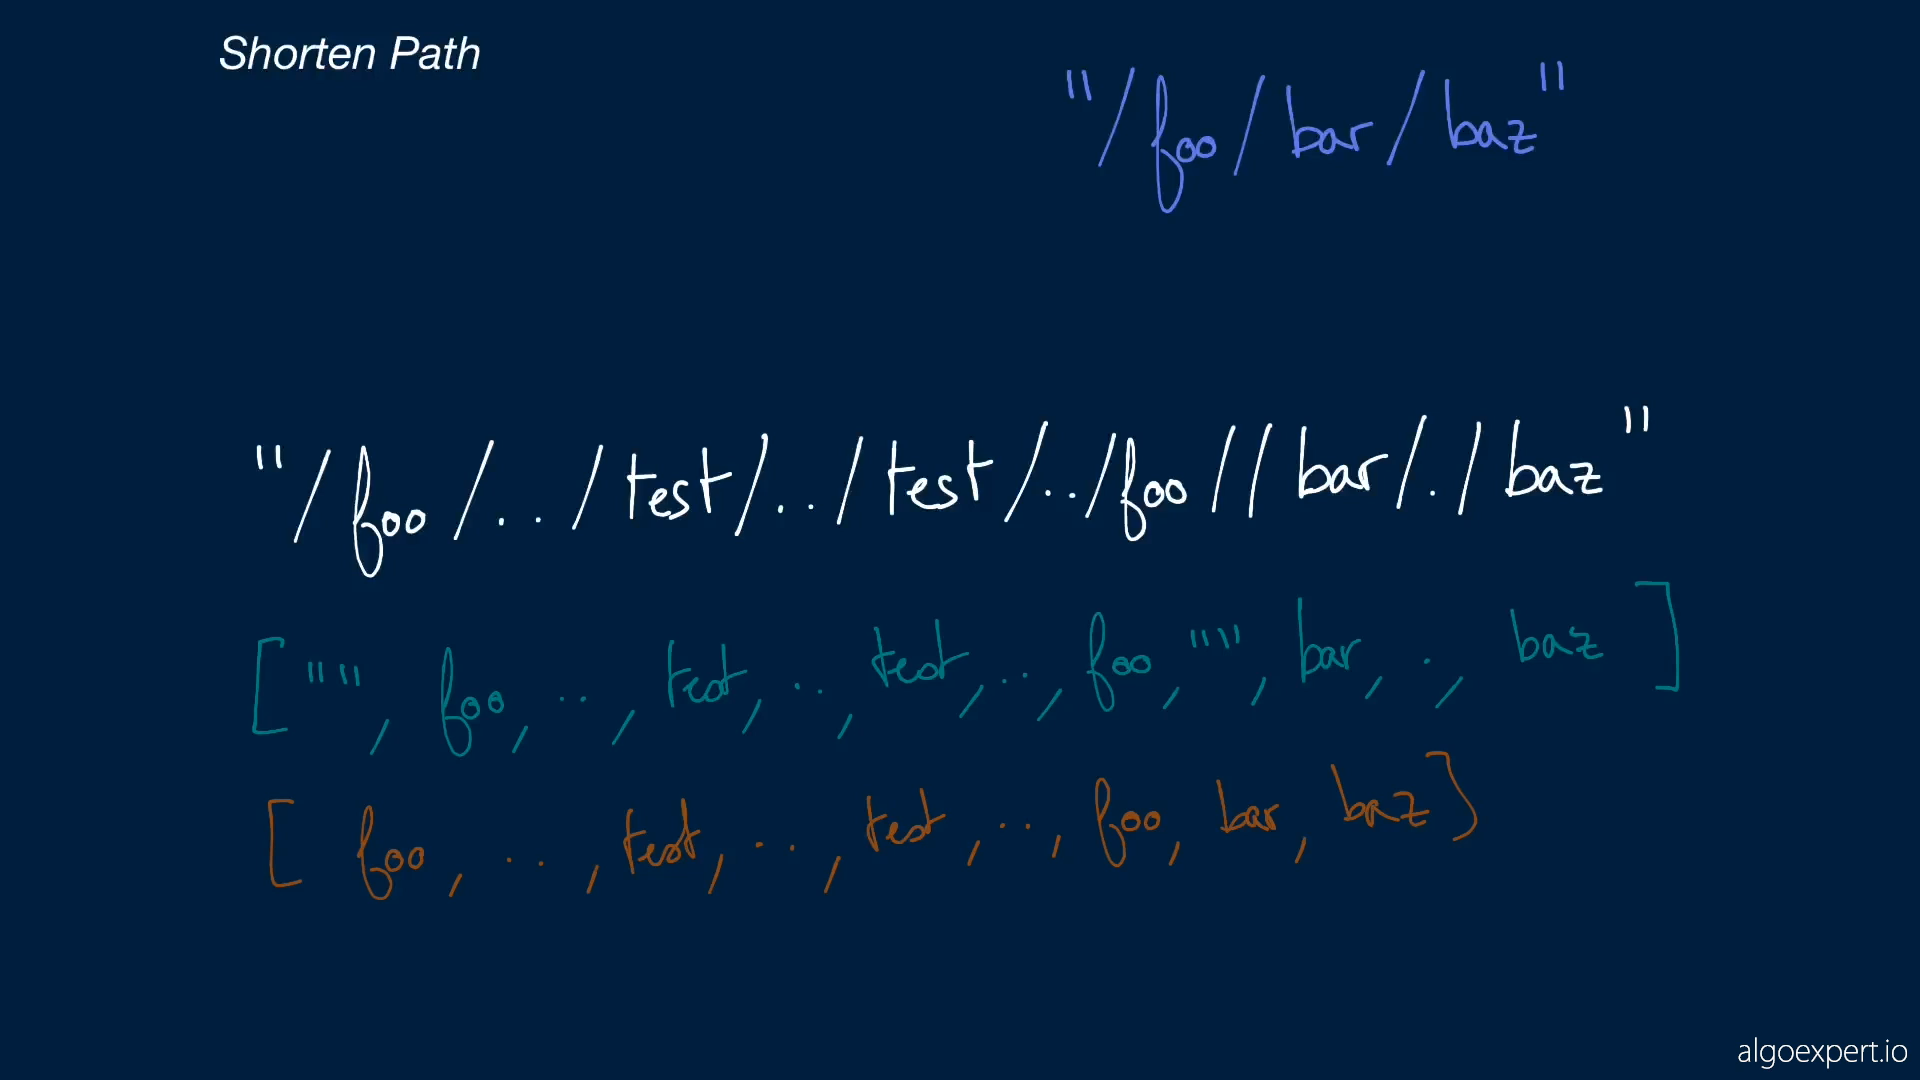 Shorten Path
"/foo/bar/baz"
"/foo/../test/../test/../foo//bar/./baz"
["", foo, .., test, .., test, .., foo, "", bar, ., baz]
[foo, .., test, .., test, .., foo, bar, baz]
algoexpert.io